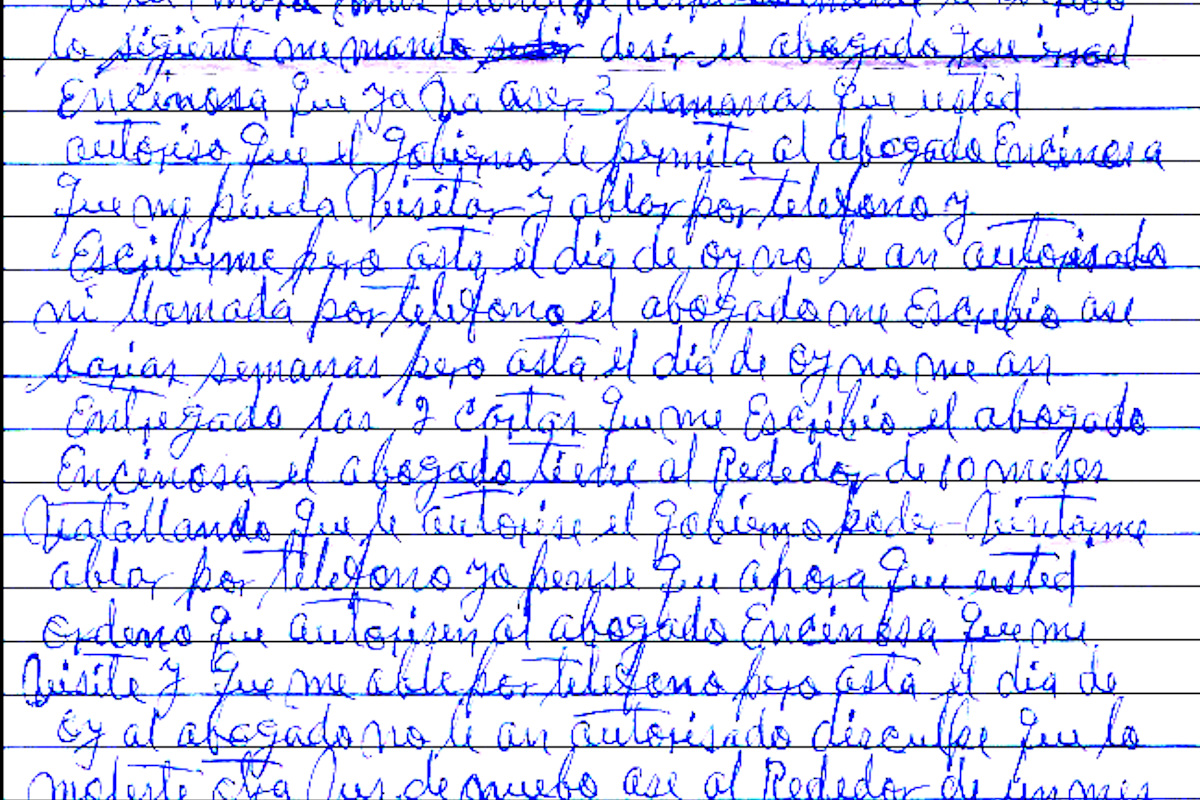 lo sigiente me mando desir el abogado Jose israel
Encinosa que ya va ase 3 semanas que usted
autoriso que el gobierno le permita al abogado Encinosa
que me pueda Visitar y ablar por telefono y
Escribirme pero asta el dia de oy no le an autorisado
ni llamada por telefono el abogado me Escribio ase
barias semanas pero asta el dia de oy no me an
Entregado las 2 cartas que me Escribio el abogado
Encinosa el abogado tiene al Rededor de 10 meses
Vatallando que le autorise el gobierno poder Visitarme
ablar por telefono yo pense que ahora que usted
ordeno que autorisen al abogado Encinosa que me
Visite y que me able por telefono pero asta el dia de
oy al abogado no le an autorisado disculpe que lo
moleste otra Vus de nuebo ase al Rededor de un mes